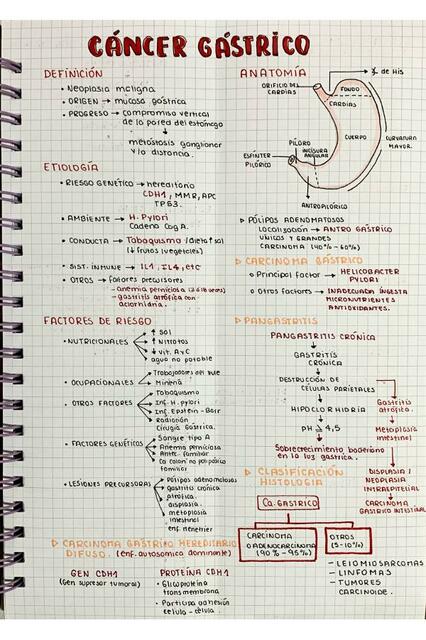 CÁNCER GÁSTRICO
DEFINICIÓN
• Neoplasia maligna
• ORIGEN → mucosa gástrica
• PROGRESO → compromiso vertical
de la pared del estómago
↓
metástasis ganglionar
y/o distancia.
ETIOLOGÍA
• RIESGO GENÉTICO → hereditario
CDH1, MMR, APC
TP53.
• AMBIENTE → H. Pylori
Cadena Cag A.
• CONDUCTA → Tabaquismo /dieta ↑sal
(↓ frutas/vegetales)
• SIST. INMUNE → IL1, IL4, etc
• OTROS → factores precursores
- anemia perniciosa
- gastritis atrófica con
aclorhidria.
FACTORES DE RIESGO
• NUTRICIONALES
↑ sal
↑ NITRATOS
↓ vit. A y C
agua no potable
• OCUPACIONALES
Trabajadores del
Minería
• OTROS FACTORES
Tabaquismo
Inf. H. pylori
Inf. Epstein - Barr
Radiación
Cirugía gástrica.
• FACTORES GENÉTICOS
Sangre tipo A
Anemia perniciosa
Antec. familiar
Ca colon no polipósico
familiar
• LESIONES PRECURSORAS
Pólipos adenomatosos
gastritis crónica
atrófica.
displasia.
metaplasia
intestinal
enf. menetrier
▷ CARCINOMA GÁSTRICO HEREDITARIO
DIFUSO. (enf. autosomica dominante)
GEN CDH1
(Gen supresor tumoral)
PROTEÍNA CDH1
- Glicoproteína
transmembrana
- Participa adhesión
celula - celula.
ANATOMÍA
de His
ORIFICIO DEL
CARDIAS
FONDO
CARDIAS
PÍLORO
INCISURA
ANGULAR
CUERPO
CURVATURA
MAYOR.
ESFINTER
PILÓRICO
ANTROPILÓRICO
▷ PÓLIPOS ADENOMATOSOS
Localización → ANTRO GÁSTRICO
UNICOS Y GRANDES
CARCINOMA (40% - 60%)
▷ CARCINOMA GÁSTRICO
o Principal Factor → HELICOBACTER
PYLORI
o Otros Factores → INADECUADA INGESTA
MICRONUTRIENTES
ANTIOXIDANTES.
▷ PANGASTRITIS
PANGASTRITIS CRÓNICA
↓
GASTRITIS
CRÓNICA
↓
DESTRUCCIÓN DE
CÉLULAS PARIETALES
↓
HIPOCLORHIDRIA
↓
PH ≥ 4,5
↓
Sobrecrecimiento bacteriano
en la luz gástrica.
Gastritis
atrófica.
↓
Metaplasia
intestinal
↓
DISPLASIA /
NEOPLASIA
INTRAEPITELIAL
↓
CARCINOMA
GÁSTRICO INTESTINAL
▷ CLASIFICACIÓN
HISTOLOGÍA
Ca. GASTRICO
CARCINOMA
O ADENOCARCINOMA
(90% - 95%)
OTROS
(5-10%)
- LEIOMIOSARCOMAS
- LINFOMAS
- TUMORES
CARCINOIDE.